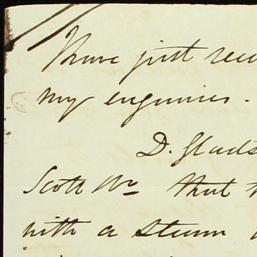 have just rece
my enquiries.
D. Glads
Scott Wm that
with a steam